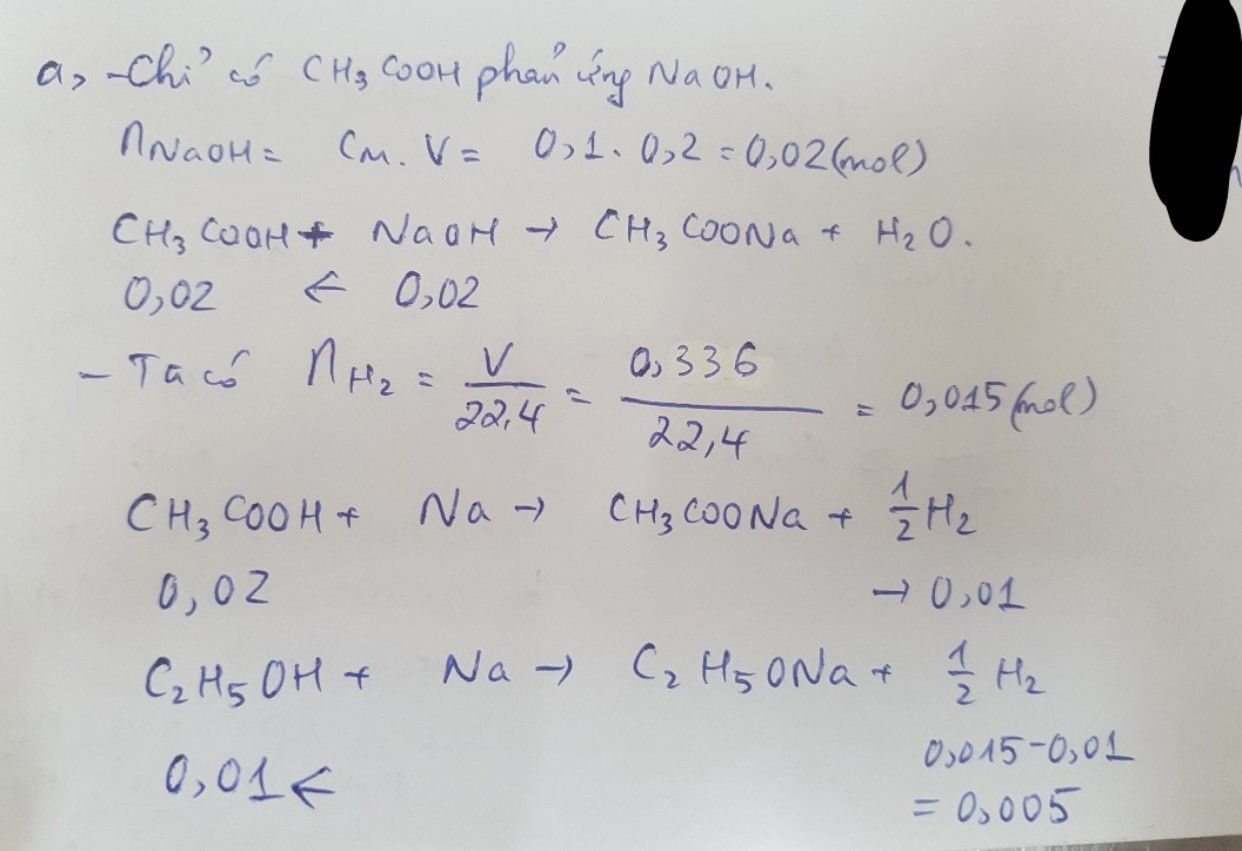 a, - Chỉ có CH₃COOH phản ứng NaOH.
nNaOH = CM. V = 0,1. 0,2 = 0,02(mol)
CH₃COOH + NaOH → CH₃COONa + H₂O.
0,02 ← 0,02
- Ta có nH₂ = V/22,4 = 0,336/22,4 = 0,015(mol)
CH₃COOH + Na → CH₃COONa + 1/2 H₂
0,02 → 0,01
C₂H₅OH + Na → C₂H₅ONa + 1/2 H₂
0,01 ← 0,015-0,01
= 0,005